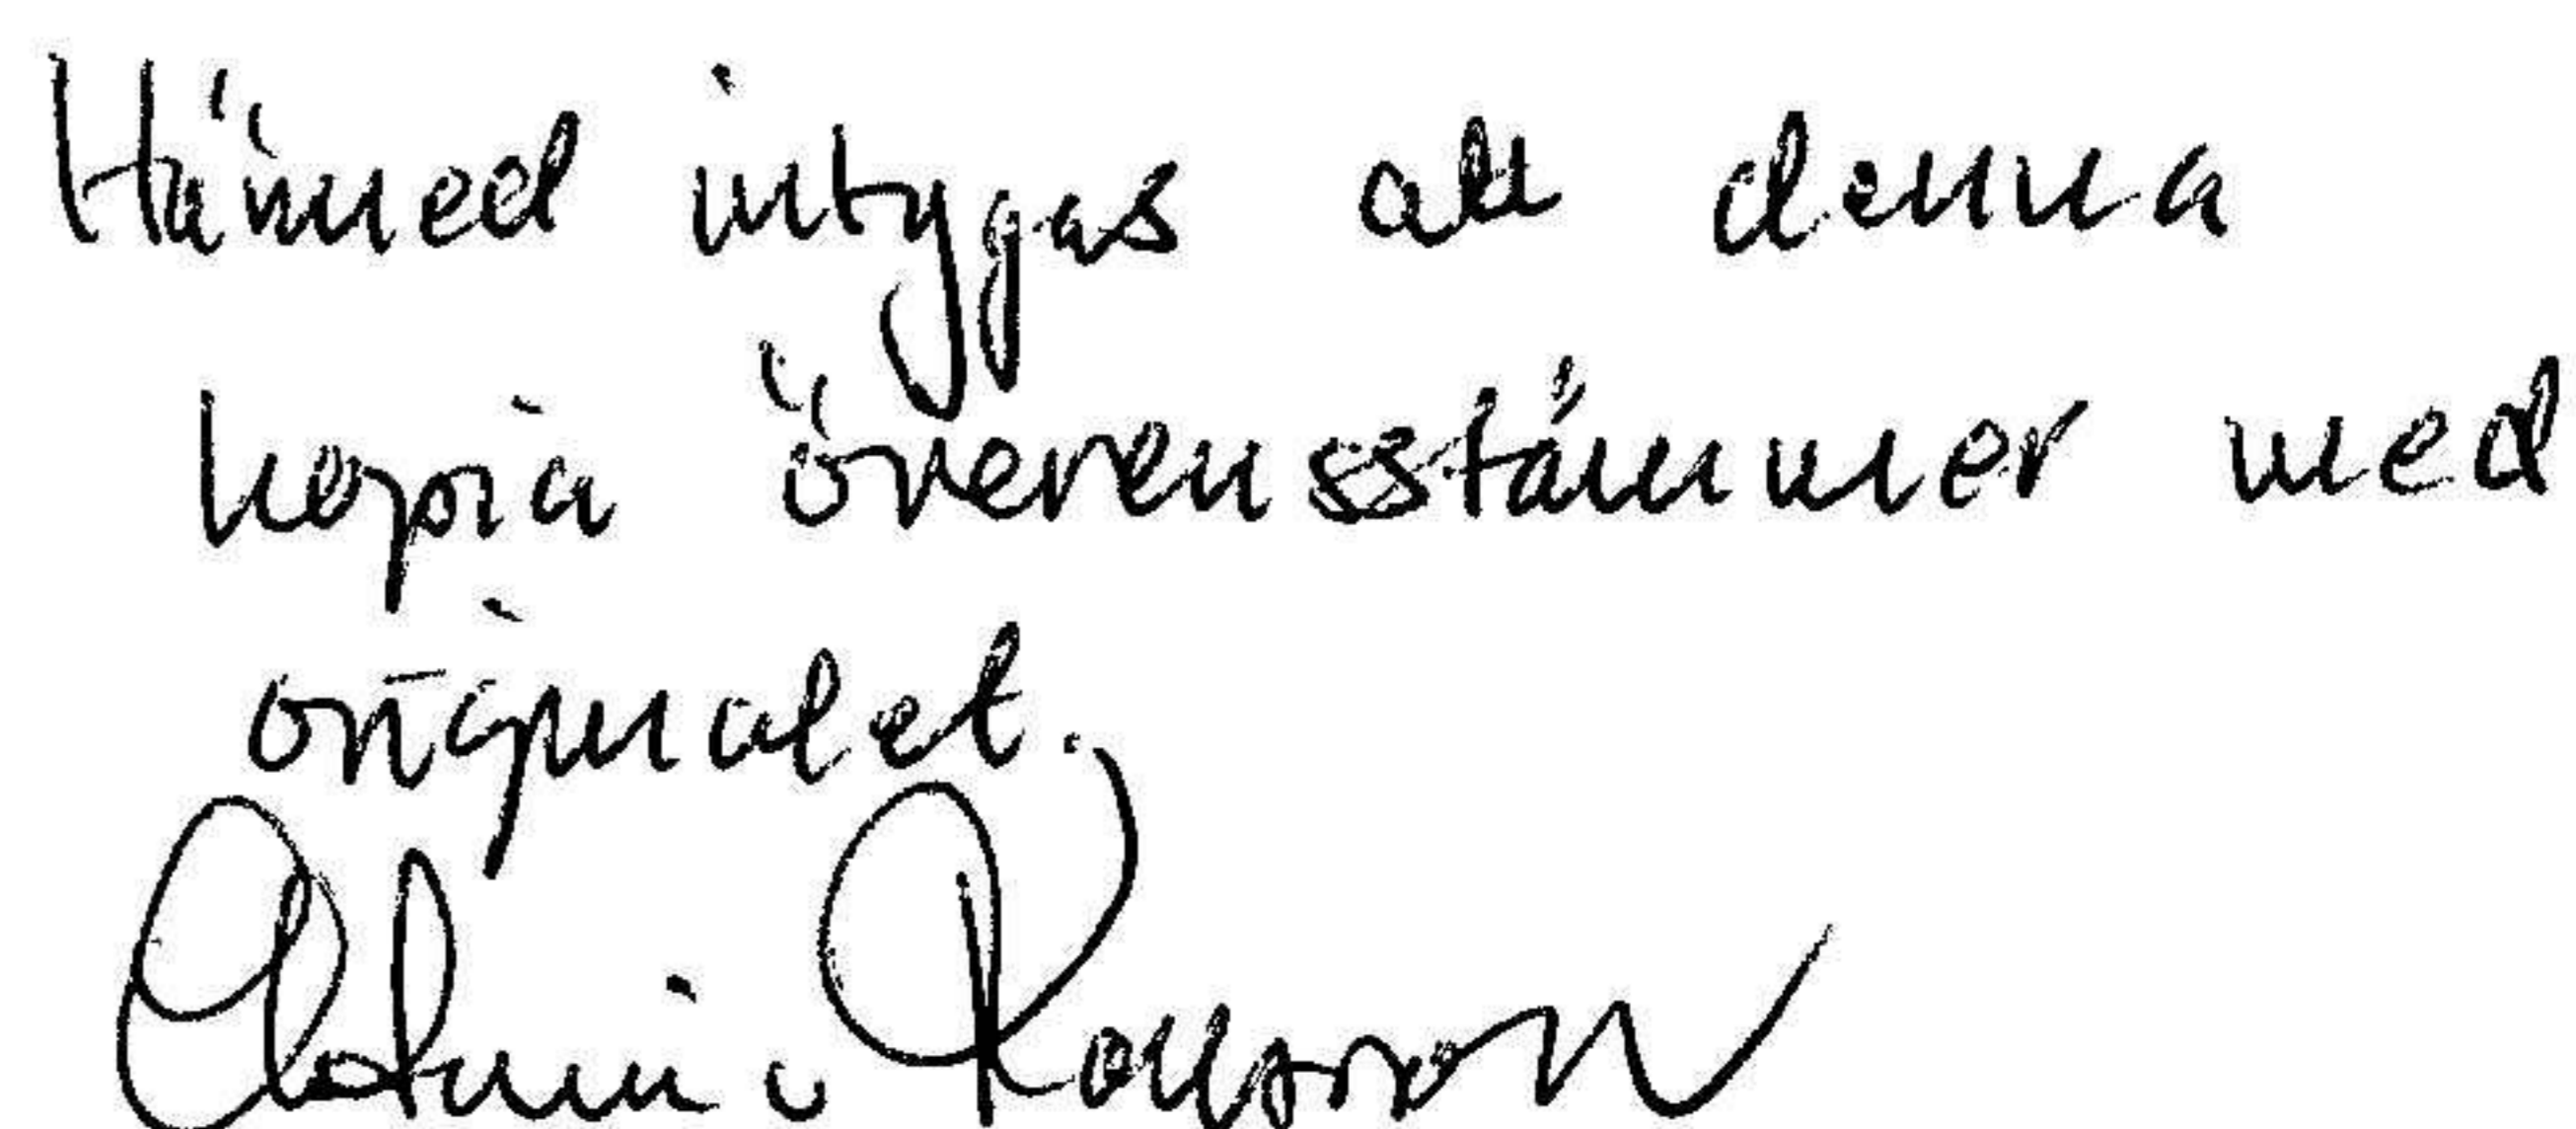 Härmed intygas att denna
kopia överensstämmer med
originalet.